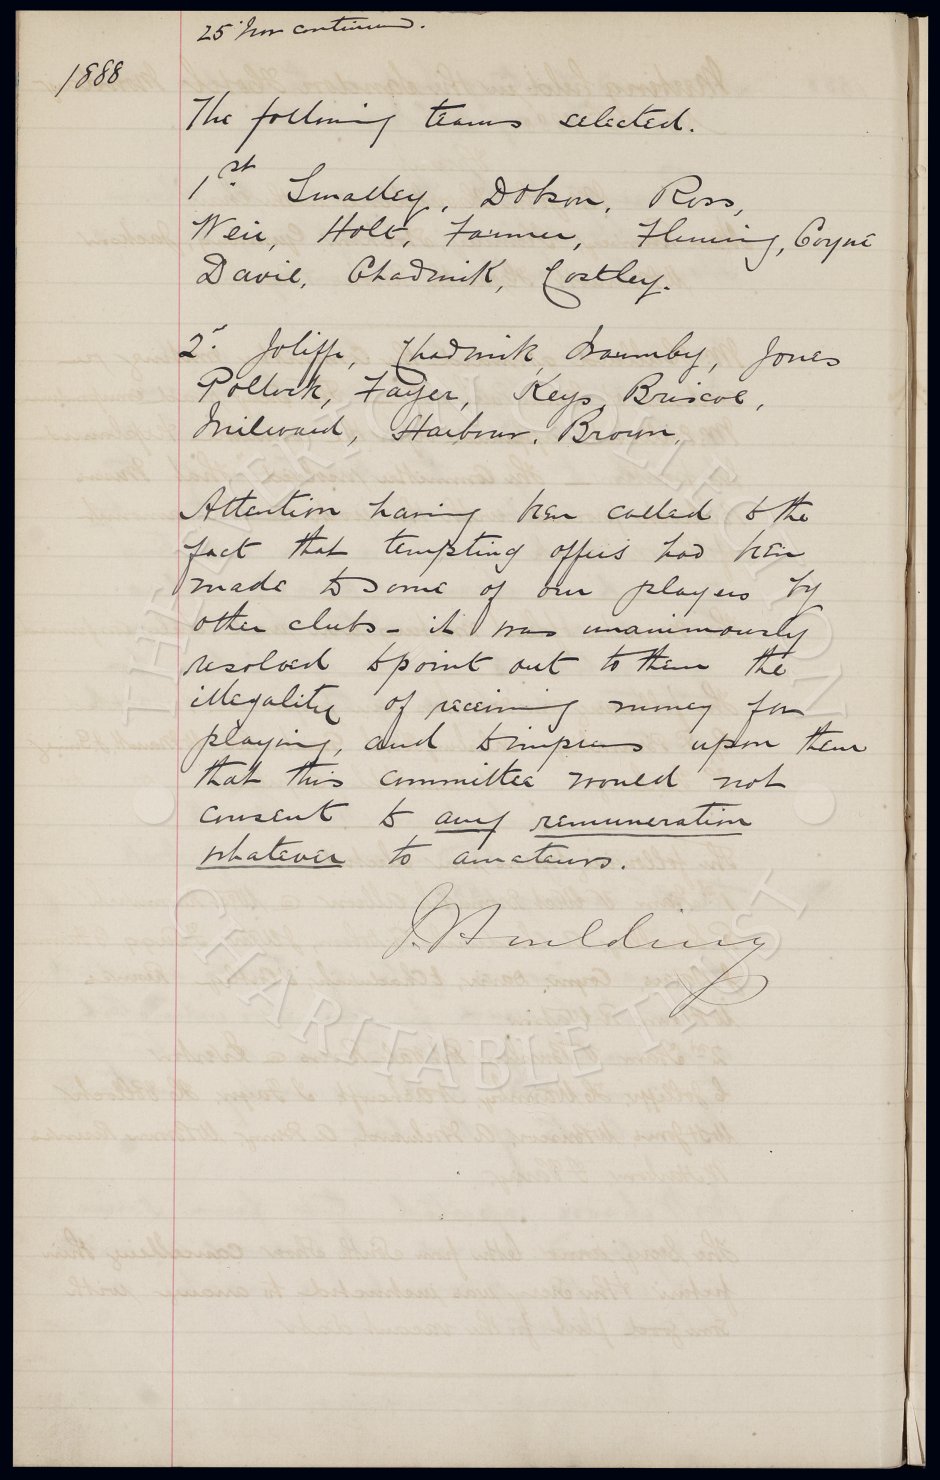 25 Nov continued.
1888
The following teams selected.
1st. Smalley, Dobson, Ross,
Weir, Holt, Farmer, Fleming, Coyne
Davie, Chadwick, Costley.
2d. Joliffe, Chadwick, Warmby, Jones
Pollock, Fayer, Keys, Briscoe,
Milward, Harbour, Brown.
Attention having been called to the
fact that tempting offers had been
made to some of our players by
other clubs - it was unanimously
resolved to point out to them the
illegality of receiving money for
playing, and to impress upon them
that this committee would not
consent to any remuneration
whatever to amateurs.
J. Houlding
THE EVERTON COLLECTION
CHARITABLE TRUST